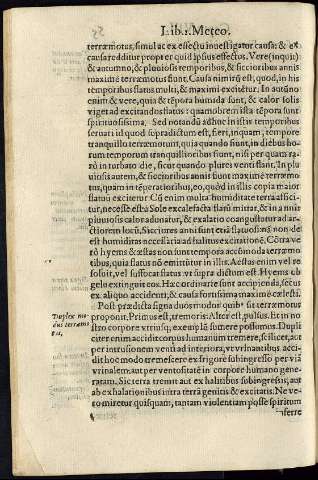 Lib. 2. Meteo.
terræmotus, simul ac ex effectu inuestigatur causa: & ex
causa redditur propter quid ipsius effectus. Vere (inquit)
& autumno, & pluuiosis temporibus, & siccioribus annis
maxime terræmotus fiunt. Causa nimirũ est, quod, in his
temporibus flatus multi, & maximi excitẽtur. In autũno
enim & vere, quia & tẽpora humida sunt, & calor solis
viget ad excitandos flatus: quamobrem ista tẽpora sunt
spirituosissima. Sed notandũ adhuc in istis temporibus
seruari id quod supradictum est, fieri, inquam, tempore
tranquillo terræmotum, quia quando fiunt, in diebus ho
rum temporum tranquillioribus fiunt, nisi per quam ra
rò in turbato die, sicut quando plures venti flant. In plu
uiosis autem, & siccioribus annis fiunt maxime terræmo
tus, quam in tẽperatioribus, eo, quòd in illis copia maior
flatuũ excitetur. Cũ enim multa humiditate terra affici
tur, necesse est à Sole excalefacta flatũ mittat, & in annis
pluuiosis calor adunatur, & exalatio coangustatur ad ar
ctiorem locũ. Sicciores anni sunt etiã flatuosi: nã non de
est humiditas necessaria ad halitus excitationẽ. Cõtra ve
rò hyems & æstas non sunt tempora accõmoda terræmo
tibus, quia flatus nõ emittitur in illis. Aestas enim vel re
soluit, vel suffocat flatus vt supra dictum est. Hyems cũ
gelu extinguit eos. Hæc ordinarie sunt accipienda, secus
ex aliquo accidenti, & causa fortissima maxime cælesti.
Post prædicta signa duos modus quib⁹ fit terræmotus
Duplex mo
proponit. Primus est, tremoris: Alter est, pulsus. Et in no
dus terræmo
stro corpore vtriusq; exemplũ sumere possumus. Dupli
tus,
citer enim accidit corpus humanum tremere, scilicet, aut
per intrusionem venti ad interiora, vt vrinantibus acci
dit hoc modo tremefscere ex frigore subingresso per viã
vrinalem: aut per ventositatẽ in corpore humano gene
ratam. Sic terra tremit aut ex halitibus subingressis, aut
ab exhalationibus intra terrã genitis & excitatis. Ne ve
ro miretur quisquam, tantam violentiam posse spiritum
inferre